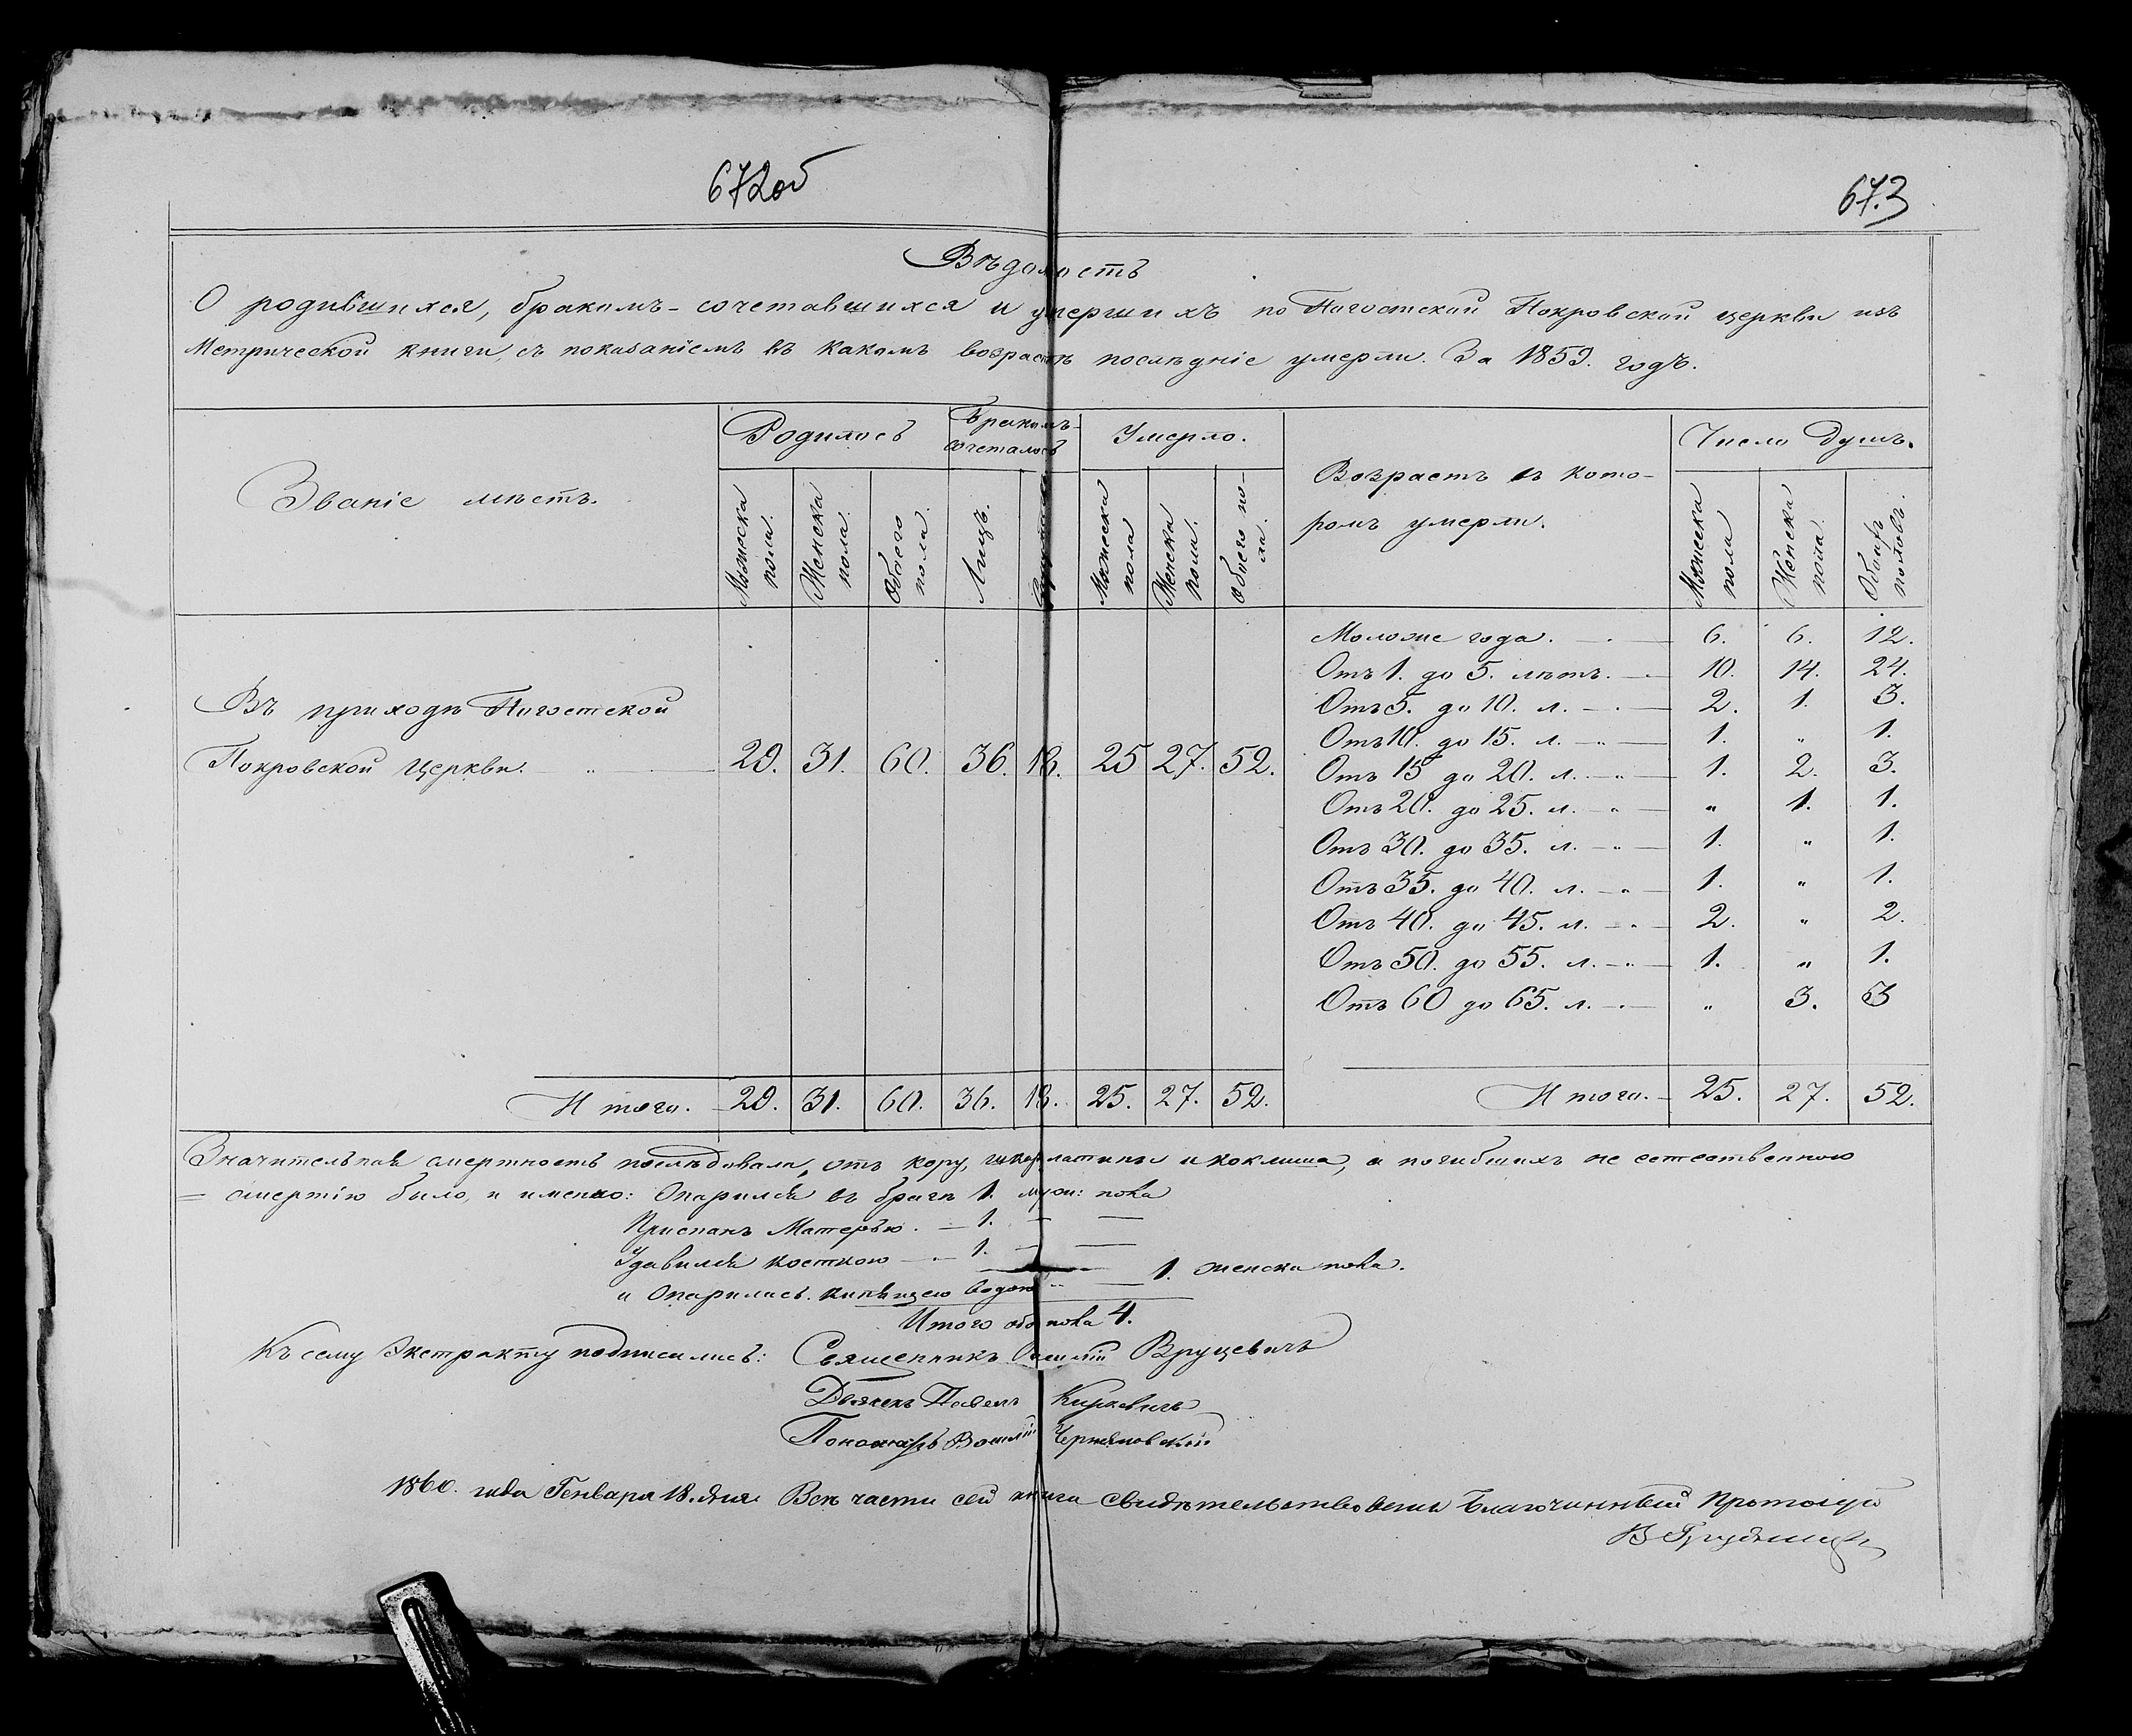 672об
673
Вѣдомость
О родившихся, бракомъ-сочетавшихся и умершихъ по Погостской Покровской церкви изъ
Метрической книги, съ показаніемъ въ какомъ возрастѣ послѣдніе умерли. За 1859. годъ.
Званіе мѣстъ.
Родилось
Бракомъ-
сочеталось
Умерло.
Возрастъ въ кото-
ромъ умерли.
Число Душъ.
Мужеска пола.
Женска пола.
Обоего пола.
Лицъ.
Мужеска пола
Женска пола.
Обоего по-
ла.
Мужеска пола
Женска пола.
Обоихъ половъ.
Въ приходѣ Погостской
Покровской Церкви. 29. 31. 60. 36. 18. 25 27. 52.
Моложе года. 6. 6. 12.
Отъ 1. до 5. лѣтъ. 10. 14. 24.
Отъ 5. до 10. л. 2. 1. 3.
Отъ 10. до 15. л. 1. „ 1.
Отъ 15 до 20. л. 1. 2. 3.
Отъ 20. до 25. л. „ 1. 1.
Отъ 30. до 35. л. 1. „ 1.
Отъ 35. до 40. л. 1. „ 1.
Отъ 40. до 45. л. 2. „ 2.
Отъ 50. до 55. л. 1. „ 1.
Отъ 60 до 65. л. „ 3. 3
Итого. 29. 31. 60. 36. 18. 25. 27. 52.
Итого. 25. 27. 52.
Значительная смертность послѣдовала, отъ кору, шкарлатины и коклюша, а погибшихъ не естественною
смертію было, а именно: Опарился въ брагѣ 1. муж: пола
Приспанъ Матерью. — 1. — —
Удавился косткою — 1. — —
и Опарилась кипящею водою — 1. женска пола.
Итого обо пола 4.
Къ сему Экстракту подписались: Священникъ Василій Вруцевичъ
Дьячекъ Павелъ Киркевичъ
Пономарь Василій Черняковскій
1860. года Генваря 18. дня Всѣ части сей книги свидѣтельствовалъ Благочинный Протоіерей
В